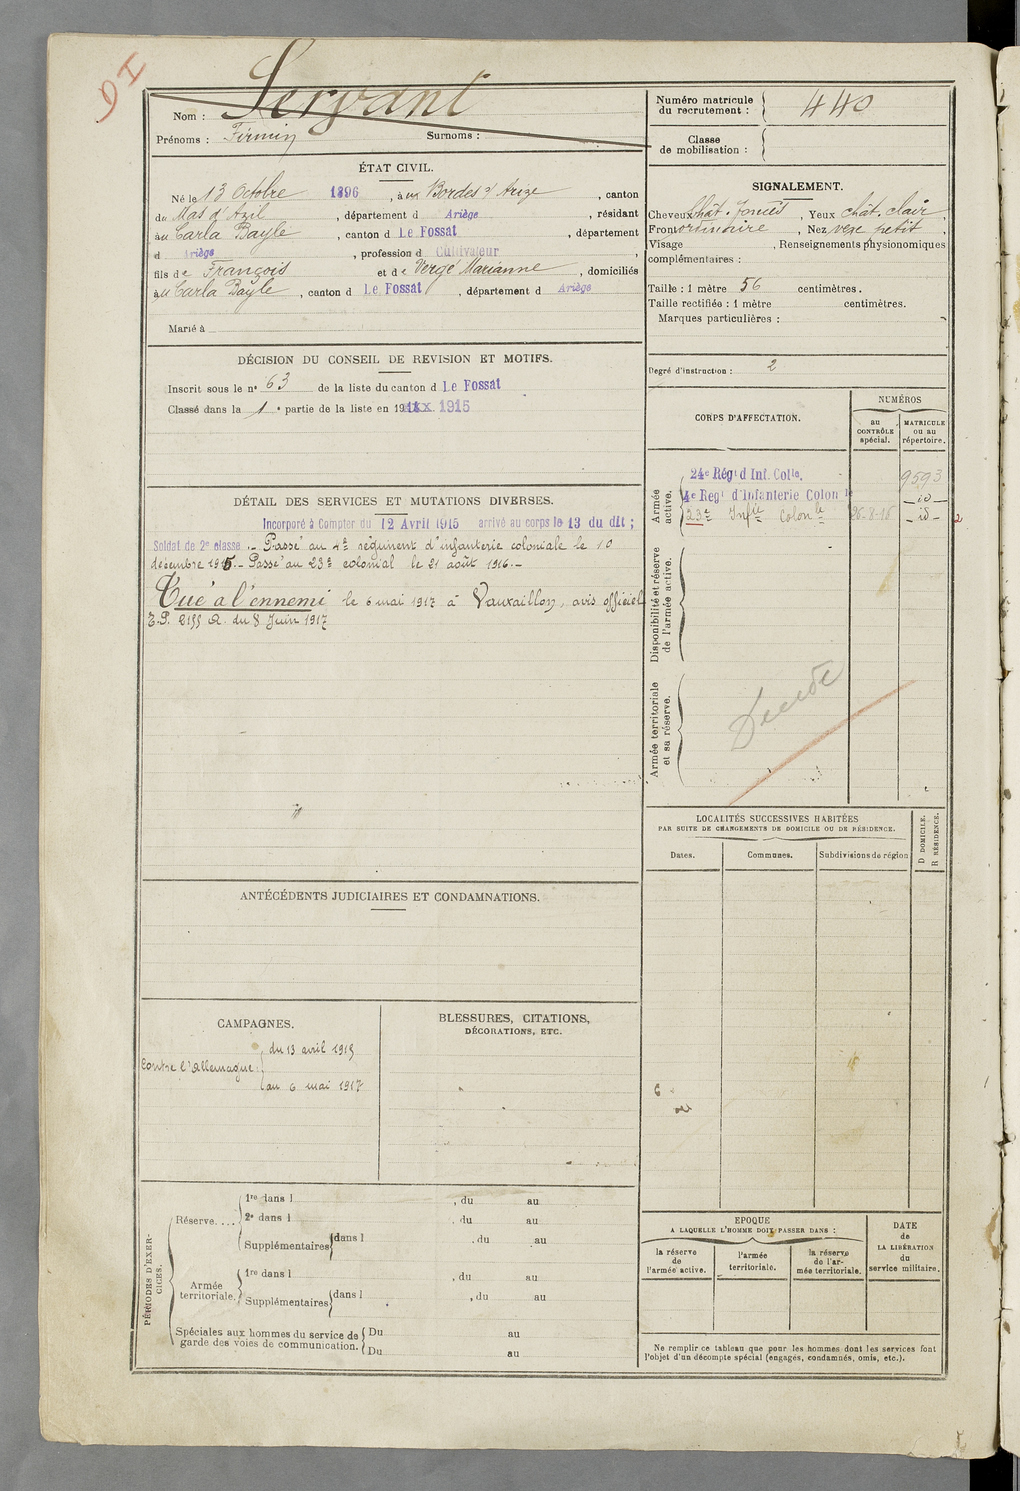 Nom : Servant
Prénoms : Firmin Surnoms :
Numéro matricule du recrutement : 440
Classe de mobilisation :
ÉTAT CIVIL.
Né le 13 Octobre 1896, à ux Bordes s/ Arize, canton
du Mas d'Azil, département d Ariège, résidant
au Carla Bayle, canton d Le Fossat, département
d Ariège, profession d Cultivateur
fils de François et de Vergé Marianne, domiciliés
au Carla Bayle, canton d Le Fossat, département d Ariège
Marié à
SIGNALEMENT.
Cheveux chât. foncés, Yeux chât. clair,
Front ordinaire, Nez vexe petit,
Visage , Renseignements physionomiques
complémentaires :
Taille : 1 mètre 56 centimètres.
Taille rectifiée : 1 mètre centimètres.
Marques particulières :
Degré d'instruction : 2
DÉCISION DU CONSEIL DE REVISION ET MOTIFS.
Inscrit sous le n° 63 de la liste du canton d Le Fossat
Classé dans la 1e partie de la liste en 1915
CORPS D'AFFECTATION.
NUMÉROS
au CONTRÔLE spécial.
MATRICULE ou au répertoire.
Armée active.
24e Régt d Inf. Colle. 9593
4e Regt d'Infanterie Colon le — id —
23e Inftle Colonle 26-8-16 — id — 2
Disponibilité et réserve de l'armée active.
Armée territoriale et sa réserve.
Décédé
DÉTAIL DES SERVICES ET MUTATIONS DIVERSES.
Incorporé à Compter du 12 Avril 1915 arrivé au corps le 13 du dit ;
Soldat de 2e classe .- Passé au 4e régiment d'infanterie coloniale le 10
décembre 1915.- Passé au 23e colonial le 21 août 1916.-
Tué à l'ennemi le 6 mai 1917 à Vauxaillon, avis officiel
du 8 Juin 1917
LOCALITÉS SUCCESSIVES HABITÉES
PAR SUITE DE CHANGEMENTS DE DOMICILE OU DE RÉSIDENCE.
D DOMICILE.
R RÉSIDENCE.
Dates. Communes. Subdivisions de région
ANTÉCÉDENTS JUDICIAIRES ET CONDAMNATIONS.
CAMPAGNES.
Contre l'Allemagne : du 13 avril 1915
au 6 mai 1917
BLESSURES, CITATIONS,
DÉCORATIONS, ETC.
PÉRIODES D'EXERCICES.
Réserve.... 1re dans l , du au
2e dans l , du au
Supplémentaires dans l , du au
Armée territoriale. 1re dans l , du au
Supplémentaires dans l , du au
Spéciales aux hommes du service de Du au
garde des voies de communication. Du au
EPOQUE
A LAQUELLE L'HOMME DOIT PASSER DANS :
la réserve de l'armée active.
l'armée territoriale.
la réserve de l'armée territoriale.
DATE de LA LIBÉRATION du service militaire.
Ne remplir ce tableau que pour les hommes dont les services font
l'objet d'un décompte spécial (engagés, condamnés, omis, etc.).